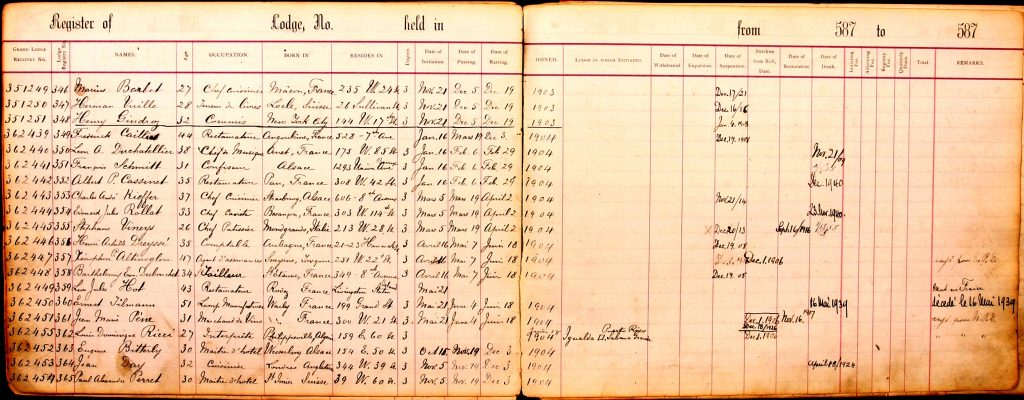 Register of Lodge, No. held in from 587 to 587
GRAND LODGE REGISTRY NO. Lodge Registry No. NAMES. Age OCCUPATION. BORN IN RESIDES IN Degree Date of Initiation. Date of Passing. Date of Raising. JOINED. LODGE IN WHICH INITIATED. Date of Withdrawal Date of Expulsion. Date of Suspension. Stricken from Roll, Date. Date of Restoration. Date of Death. Initiation Fee. Affiliation Fee. Registry Fee. Quarterly Dues. Total. REMARKS.
351249 346 Marius Barbet 27 Chef cuisinier Macon, France 235 W. 24 3 Nov. 21 Dec 5 Dec 19 1903 Dec. 17/21
351250 347 Herman Vuille 28 Teneur de livres Locle, Suisse 26 Sullivan 3 Nov. 21 Dec 5 Dec 19 1903 Dec 16/16
351251 348 Henry Gindroy 32 Commis New York City 144 W. 17 3 Nov. 21 Dec 5 Dec 19 1903
362439 349 Frederick 44 Restaurateur France 528 - 7 Ave Jan. 16 Mars 19 Dec 3 1904 Dec. 19. 1908
362440 350 Leon A. Duchatellier 38 Chef de Musique France 175 W. 85 3 Jan 16 Feb 6 Feb 29 1904 Nov. 21/09
362441 351 François Schmitt 31 Confiseur Alsace 1293 Union 3 Jan 16 Feb. 6 Feb. 29 1904
362442 352 Albert P. Cassinet 35 Restaurateur Pau, France 308 W. 42 3 Jan 16 Feb. 6 Feb. 29 1904 Dec. 1940
362443 353 Charles André Kieffer 37 Chef Cuisinier Strasburg, Alsace 606 - 8 Avenue 3 Mars 5 Mars 19 April 2 1904 Nov 21/14
362444 354 Edouard Jules Rollat 33 Chef Caviste Besançon, France 303 W. 114 3 Mars 5 Mars 19 April 2 1904 1940
362445 355 Stéphane Vineys 26 Chef Patissier Italie 213 W. 28 3 Mars 5 Mars 19 April 2 1904 Dec 20/13 Sept. 16/1916
362446 356 Henri Achille 35 Comptable Aubagne, France 21-23 3 Avril 16 Mai 7 Juin 18 1904 Dec. 19. 08
362447 357 47 Agent d'assurances Smyrne, Turquie 231 W. 22 3 Avril 16 Mai 7 Juin 18 1904 Dec. 1. 1906
362448 358 Barthelemy 34 Tailleur France 349 - 8 Avenue 3 Avril 16 Mai 7 Juin 18 1904 Dec. 19. 08
362449 359 Léon Jules Hot 43 Restaurateur France Livingston 3 Mai 21 Mort en France
362450 360 Ernest Tilmann 51 France 199 Grand St 3 Mai 21 Juin 4 Juin 18 1904 16 Mai 1939 décédé le 16 Mai 1939
362451 361 Jean Marie Pène 31 Marchand de Vins " France 300 W. 21 3 Mai 21 Juin 4 Juin 18 1904 Dec. 1. 1906 Nov. 16. 1907
362455 362 Louis Dominique Ricci 27 Interprète Philippeville, Algérie 159 E. 60 3 1904 Puerto Rico Dec 1. 1906
362452 363 Eugene Bitterly 30 Maitre d'hotel Alsace 154 E. 50 3 Oct 15 Nov. 19 Dec 3 1904
362453 364 Jean Day 32 Cuisinier Londres Angleterre 344 W. 39 3 Nov. 5 Nov. 19 Dec 3 1904 April 18/1928
362454 365 Paul Alexandre Perret 30 Maitre d'hotel St Imier Suisse 39 W. 60 3 Nov. 5 Nov 19 Dec 3 1904